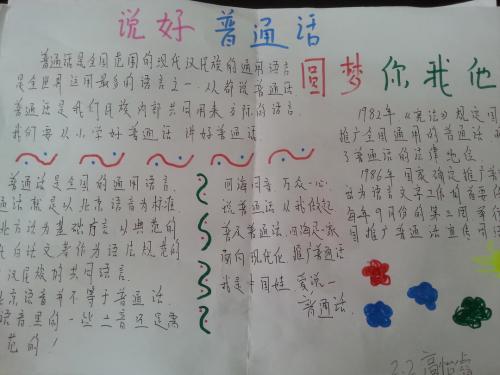 说好普通话
圆梦你我他
普通话是全国范围的现代汉民族的通用语言
是全世界运用最多的语言之一. 从都说普通话.
普通话是我们民族内部共同用来交际的语言.
我们要从小学好普通话 讲好普通话.
普通话是全国的通用语言.
通话就是以北京语音为标准
北方话为基础方言,以典范的
代白话文著作为语法规范的
汉民族的共同语言.
北京语音并不等于普通话.
语音里的一些土音还是需
范的!
四海同音 万众一心.
说普通话 从我做起.
普及普通话 四海是一家
面向现代化 推广普通话
我是中国娃 爱说一
普通话.
1982年《宪法》规定国
推广全国通用的普通话
了普通话的法律地位.
1986年 国家确定推广普
话为语言文字工作的首要
每年9月份的第三周
国推广普通话宣传周
2.2